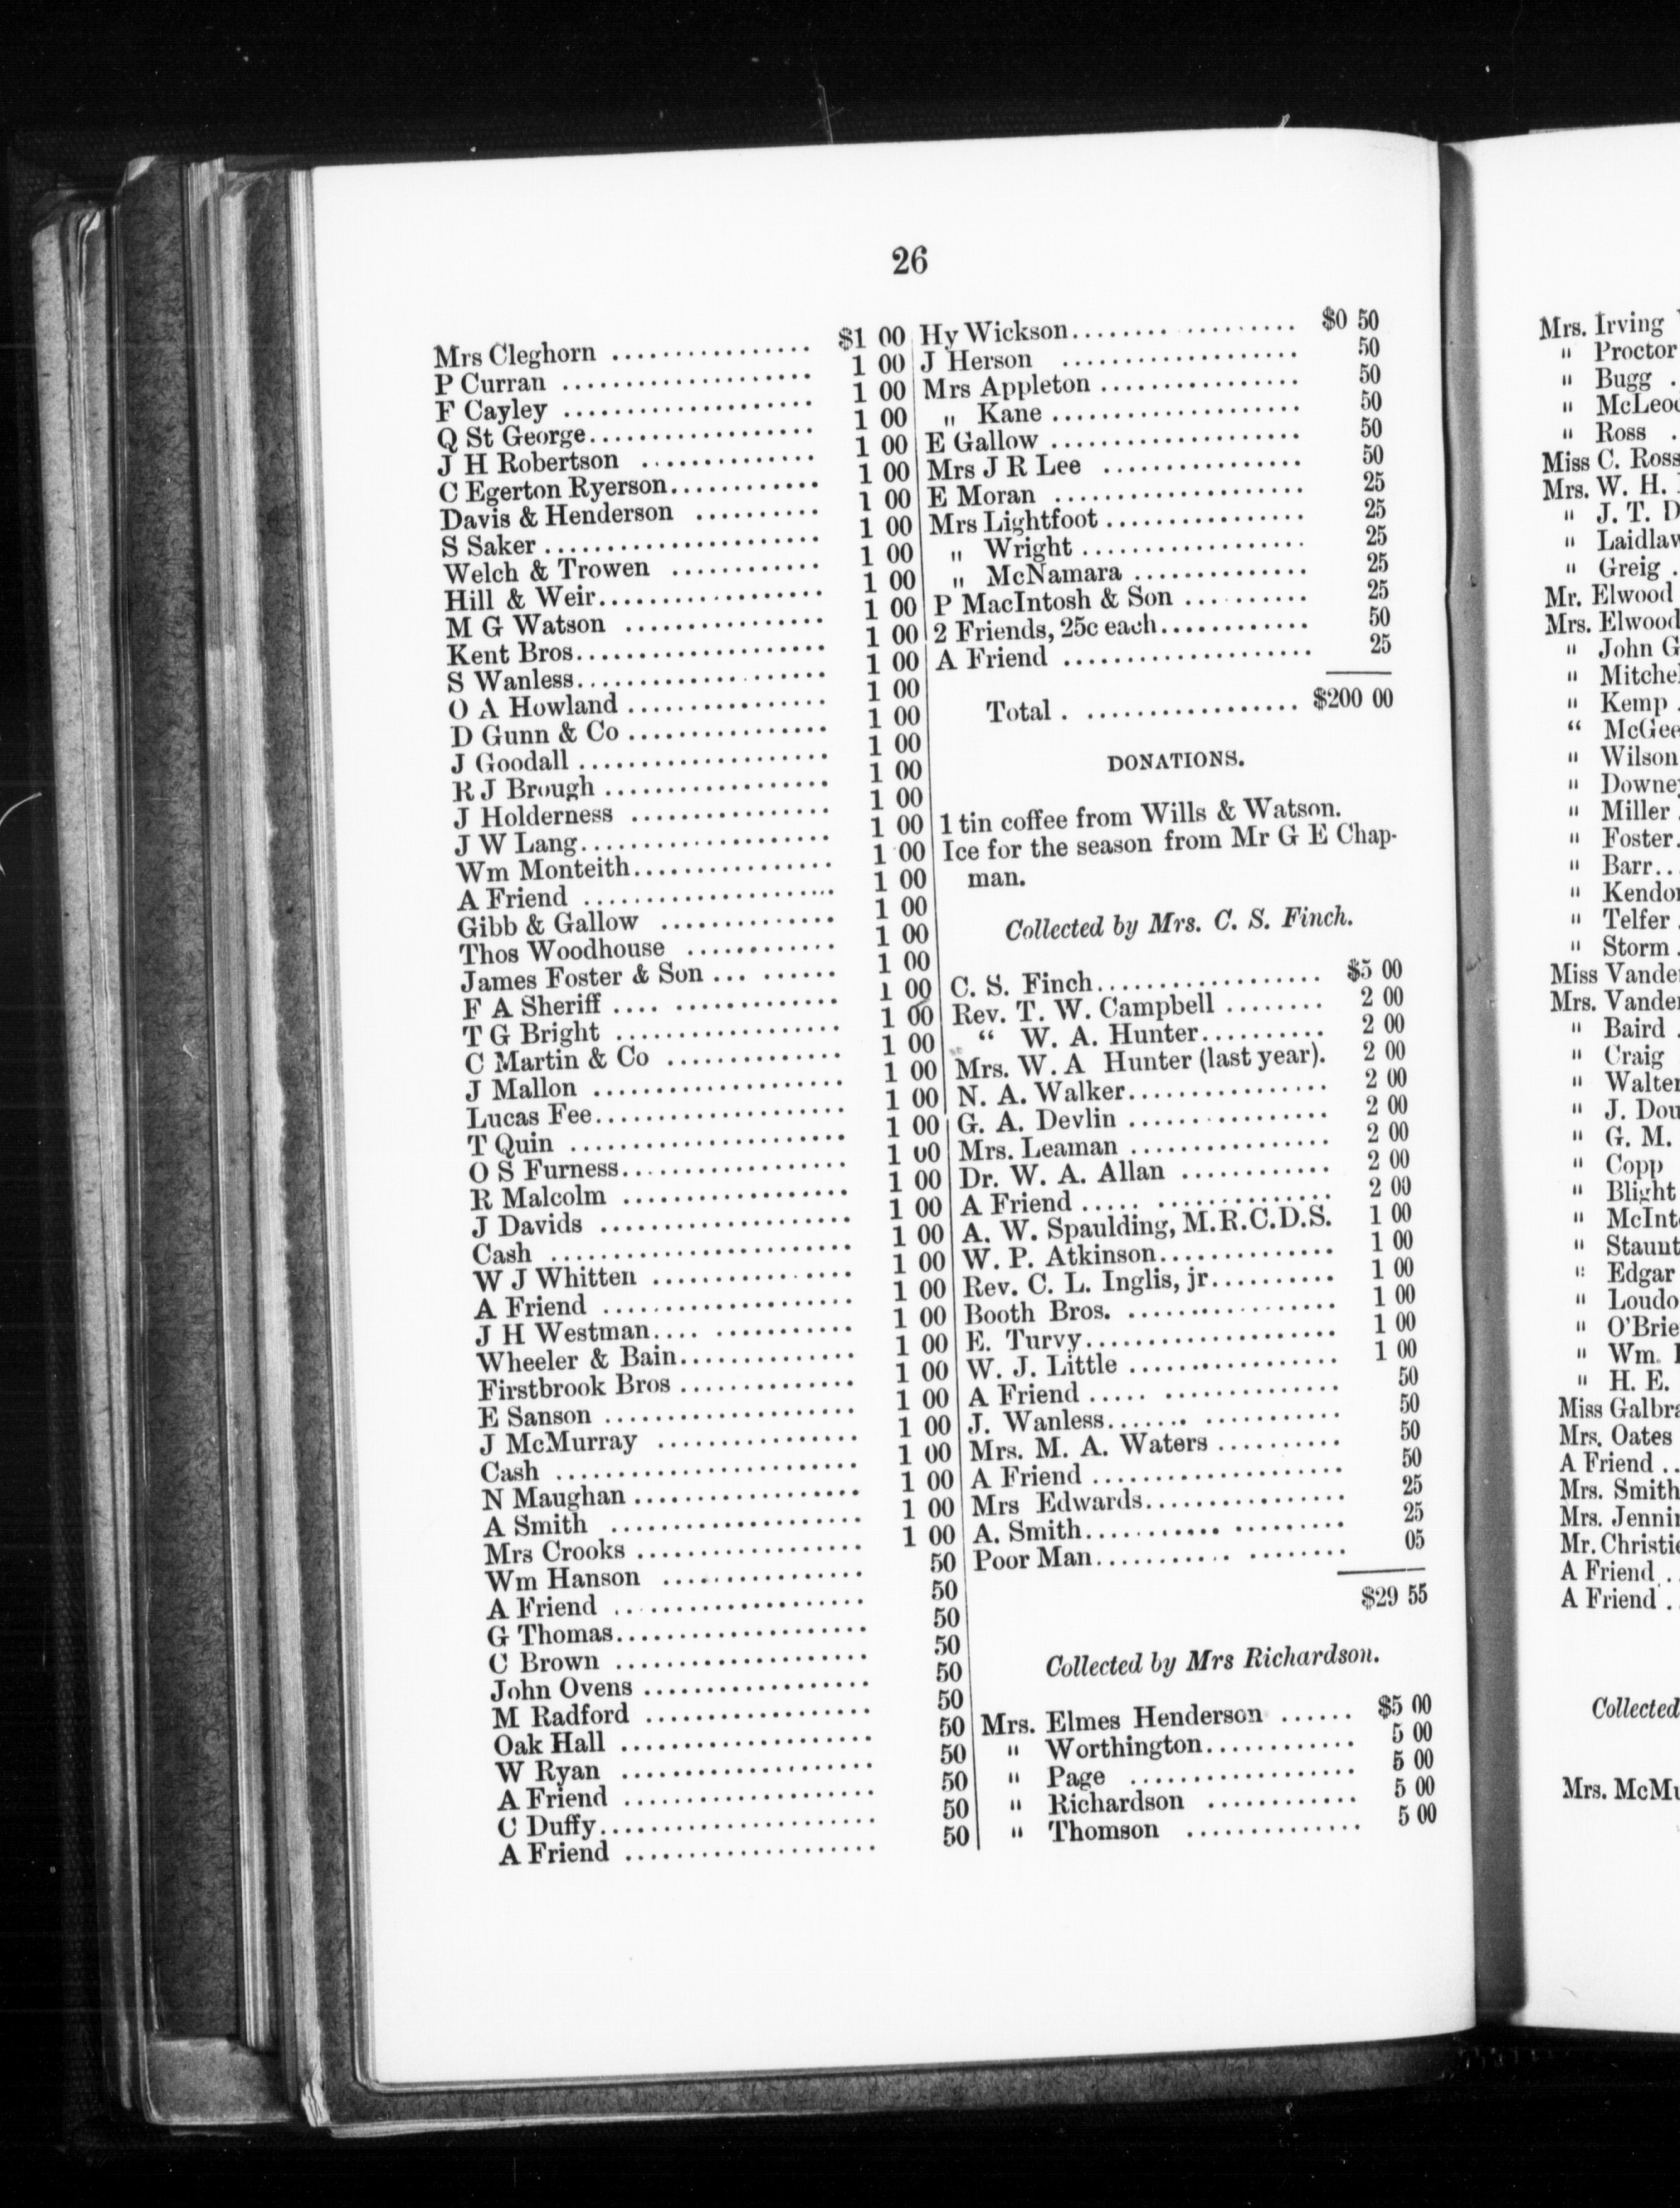 26
Mrs Cleghorn ................ $1 00
P Curran .................... 1 00
F Cayley .................... 1 00
Q St George.................. 1 00
J H Robertson .............. 1 00
C Egerton Ryerson............ 1 00
Davis & Henderson .......... 1 00
S Saker ...................... 1 00
Welch & Trowen ............ 1 00
Hill & Weir.................. 1 00
M G Watson ................ 1 00
Kent Bros.................... 1 00
S Wanless.................... 1 00
O A Howland ................ 1 00
D Gunn & Co ................ 1 00
J Goodall .................... 1 00
R J Brough .................. 1 00
J Holderness ................ 1 00
J W Lang.................... 1 00
Wm Monteith................ 1 00
A Friend .................... 1 00
Gibb & Gallow .............. 1 00
Thos Woodhouse ............ 1 00
James Foster & Son ... ...... 1 00
F A Sheriff .... ............. 1 00
T G Bright .................. 1 00
C Martin & Co .............. 1 00
J Mallon .................... 1 00
Lucas Fee.................... 1 00
T Quin ...................... 1 00
O S Furness.................. 1 00
R Malcolm .................. 1 00
J Davids .................... 1 00
Cash ........................ 1 00
W J Whitten ................ 1 00
A Friend .................... 1 00
J H Westman.... ........... 1 00
Wheeler & Bain.............. 1 00
Firstbrook Bros .............. 1 00
E Sanson .................... 1 00
J McMurray ................ 1 00
Cash ........................ 1 00
N Maughan .................. 1 00
A Smith .................... 1 00
Mrs Crooks .................. 1 00
Wm Hanson ................ 50
A Friend .................... 50
G Thomas.................... 50
C Brown .................... 50
John Ovens .................. 50
M Radford .................. 50
Oak Hall .................... 50
W Ryan .................... 50
A Friend .................... 50
C Duffy...................... 50
A Friend .................... 50
Hy Wickson.................. $0 50
J Herson .................... 50
Mrs Appleton ................ 50
" Kane .................... 50
E Gallow .................... 50
Mrs J R Lee ................ 50
E Moran .................... 25
Mrs Lightfoot ................ 25
" Wright .................. 25
" McNamara .............. 25
P MacIntosh & Son .......... 25
2 Friends, 25c each............ 50
A Friend .................... 25
Total . ................. $200 00
DONATIONS.
1 tin coffee from Wills & Watson.
Ice for the season from Mr G E Chap-
man.
Collected by Mrs. C. S. Finch.
C. S. Finch................... $5 00
Rev. T. W. Campbell ........ 2 00
“ W. A. Hunter.......... 2 00
Mrs. W. A Hunter (last year). 2 00
N. A. Walker................ 2 00
G. A. Devlin ................ 2 00
Mrs. Leaman ................ 2 00
Dr. W. A. Allan ............ 2 00
A Friend ..... .............. 2 00
A. W. Spaulding, M.R.C.D.S. 1 00
W. P. Atkinson.............. 1 00
Rev. C. L. Inglis, jr.......... 1 00
Booth Bros. ................ 1 00
E. Turvy.................... 1 00
W. J. Little ................ 1 00
A Friend ..... .............. 50
J. Wanless....... ........... 50
Mrs. M. A. Waters .......... 50
A Friend .................... 50
Mrs Edwards................ 25
A. Smith........... ......... 25
Poor Man........... ........ 05
$29 55
Collected by Mrs Richardson.
Mrs. Elmes Henderson ...... $5 00
" Worthington............ 5 00
" Page .................. 5 00
" Richardson ............ 5 00
" Thomson .............. 5 00
Mrs. Irving
" Proctor
" Bugg .
" McLeod
" Ross .
Miss C. Ross
Mrs. W. H.
" J. T. D
" Laidlaw
" Greig .
Mr. Elwood
Mrs. Elwood
" John G
" Mitchel
" Kemp .
“ McGee
" Wilson
" Downey
" Miller .
" Foster.
" Barr..
" Kendon
" Telfer .
" Storm .
Miss Vander
Mrs. Vander
" Baird .
" Craig
" Walter
" J. Dou
" G. M.
" Copp
" Blight
" McInt
" Staunt
" Edgar
" Loudo
" O'Brie
" Wm.
" H. E.
Miss Galbra
Mrs. Oates
A Friend ..
Mrs. Smith
Mrs. Jennin
Mr. Christie
A Friend ..
A Friend .
Collected
Mrs. McMu